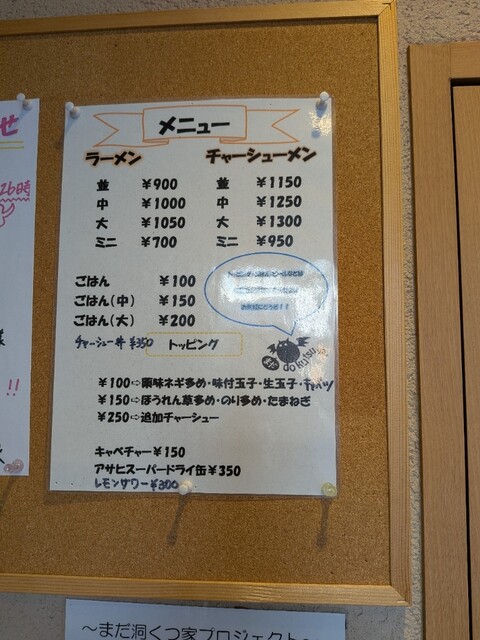 せ
26時
メニュー
ラーメン チャーシューメン
並 ¥900 並 ¥1150
中 ¥1000 中 ¥1250
大 ¥1050 大 ¥1300
ミニ ¥700 ミニ ¥950
ごはん ¥100
ごはん(中) ¥150
ごはん(大) ¥200
チャーシュー丼 ¥350 トッピング
dokutsu
¥100⇨薬味ネギ多め・味付玉子・生玉子・キャベツ
¥150⇨ほうれん草多め・のり多め・たまねぎ
¥250⇨追加チャーシュー
!!
キャベチャー¥150
アサヒスーパードライ缶¥350
レモンサワー¥300
～まだ洞くつ家プロジェクト～